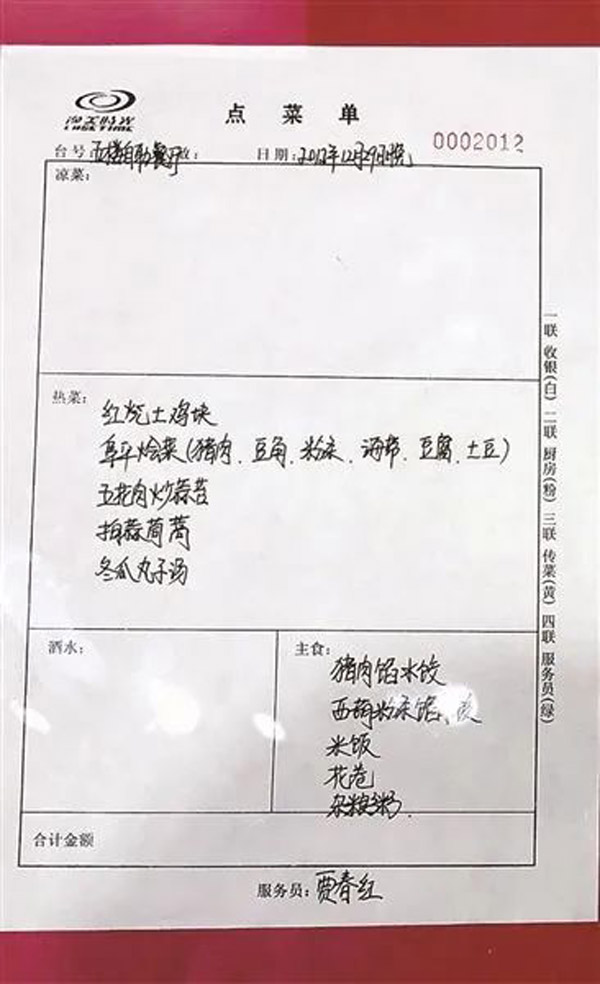 淘美時光
LOSETIME
点菜单
0002012
台号:五楼自助餐厅 日期:2012年12月29日晚
凉菜:
热菜:
红烧土鸡块
阜平烩菜(猪肉、豆角、粉条、海带、豆腐、土豆)
五花肉炒蒜苔
拍蒜茼蒿
冬瓜丸子汤
酒水:
主食:
猪肉馅水饺
西葫粉条馅
米饭
花卷
杂粮粥
合计金额
服务员:贾春红
一联 收银(白) 二联 厨房(粉) 三联 传菜(黄) 四联 服务员(绿)